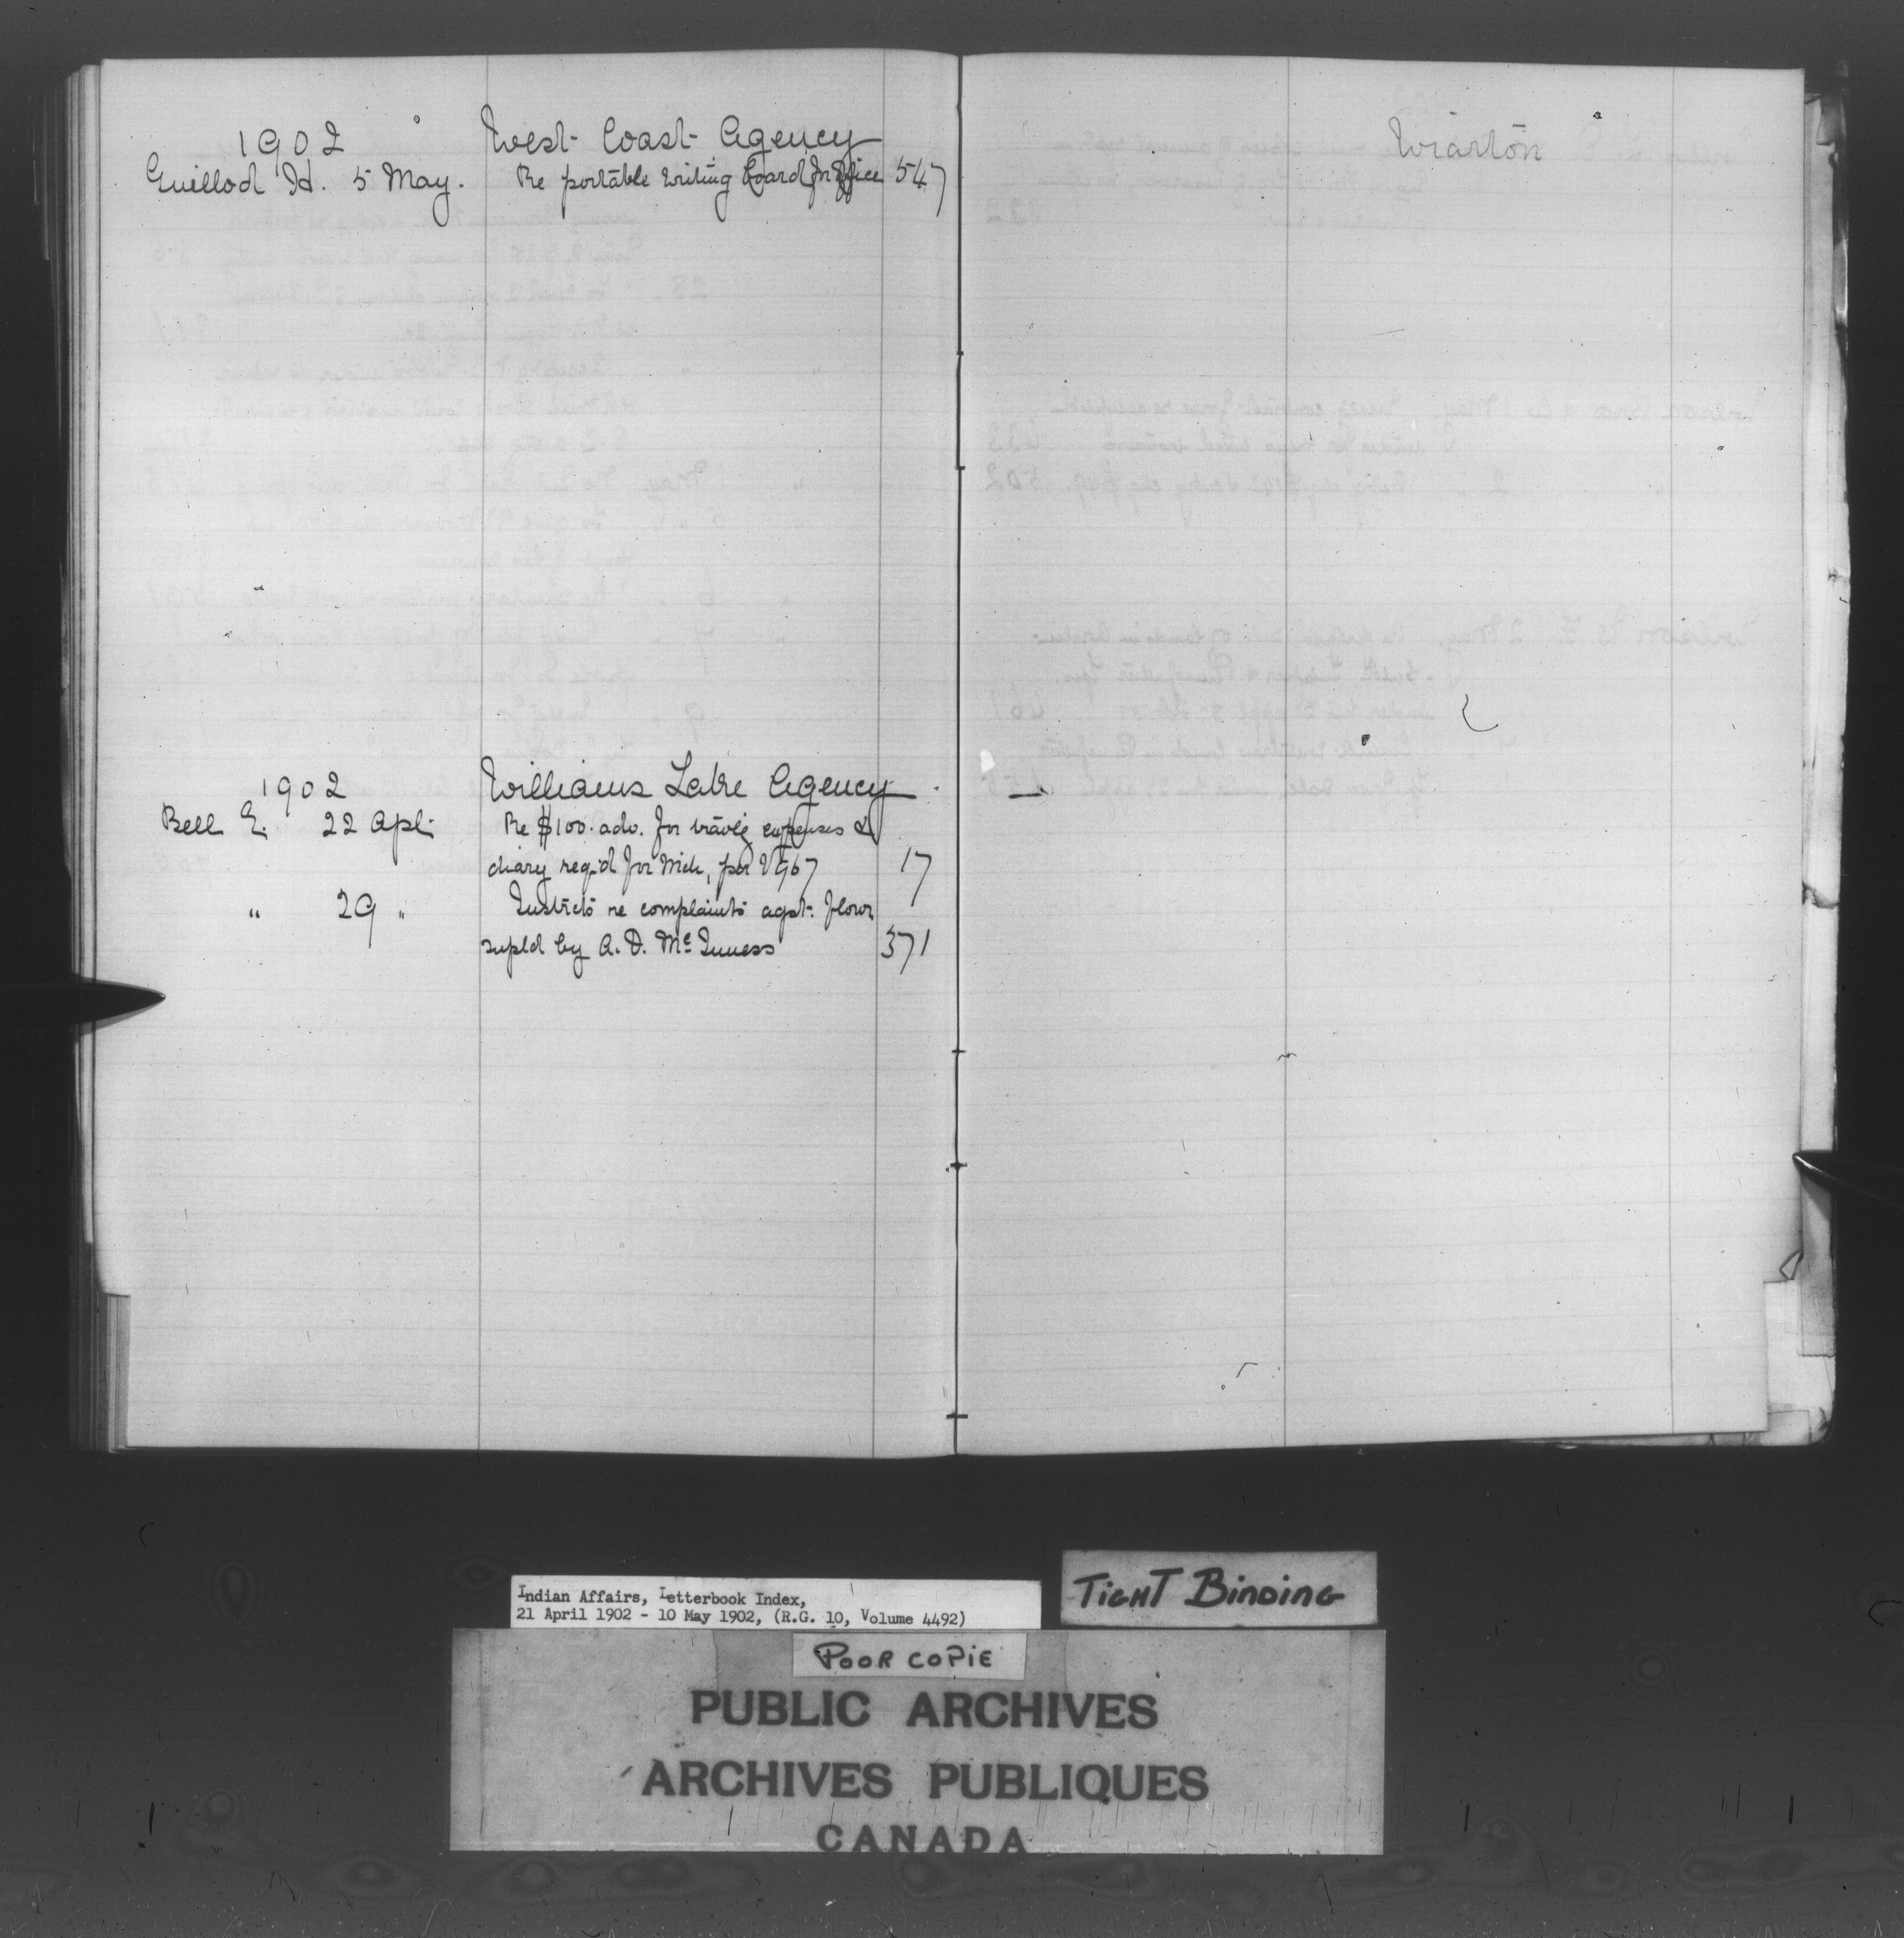 1902 West Coast Agency
Guillod H. 5 May. Re portable writing board for Office 547
1902 Williams Lake Agency
Bell E. 22 Apl. Re $100. adv. for travlg expenses &
diary reqd for Mch, per V967 17
" 29 " Instrcts re complaints agst. flour
supld by A. D. McInness 371
Wiarton
Indian Affairs, Letterbook Index,
21 April 1902 - 10 May 1902, (R.G. 10, Volume 4492)
TIGHT BINDING
POOR COPIE
PUBLIC ARCHIVES
ARCHIVES PUBLIQUES
CANADA